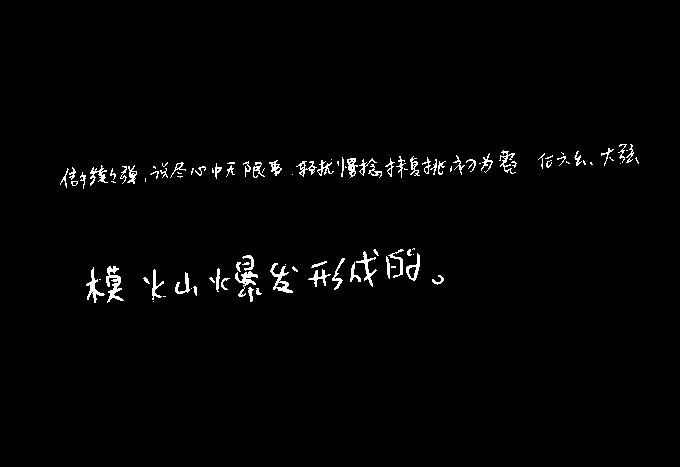 信手续续弹,说尽心中无限事.轻拢慢捻抹复挑,初为霓 后六幺、大弦
模火山爆发形成的。